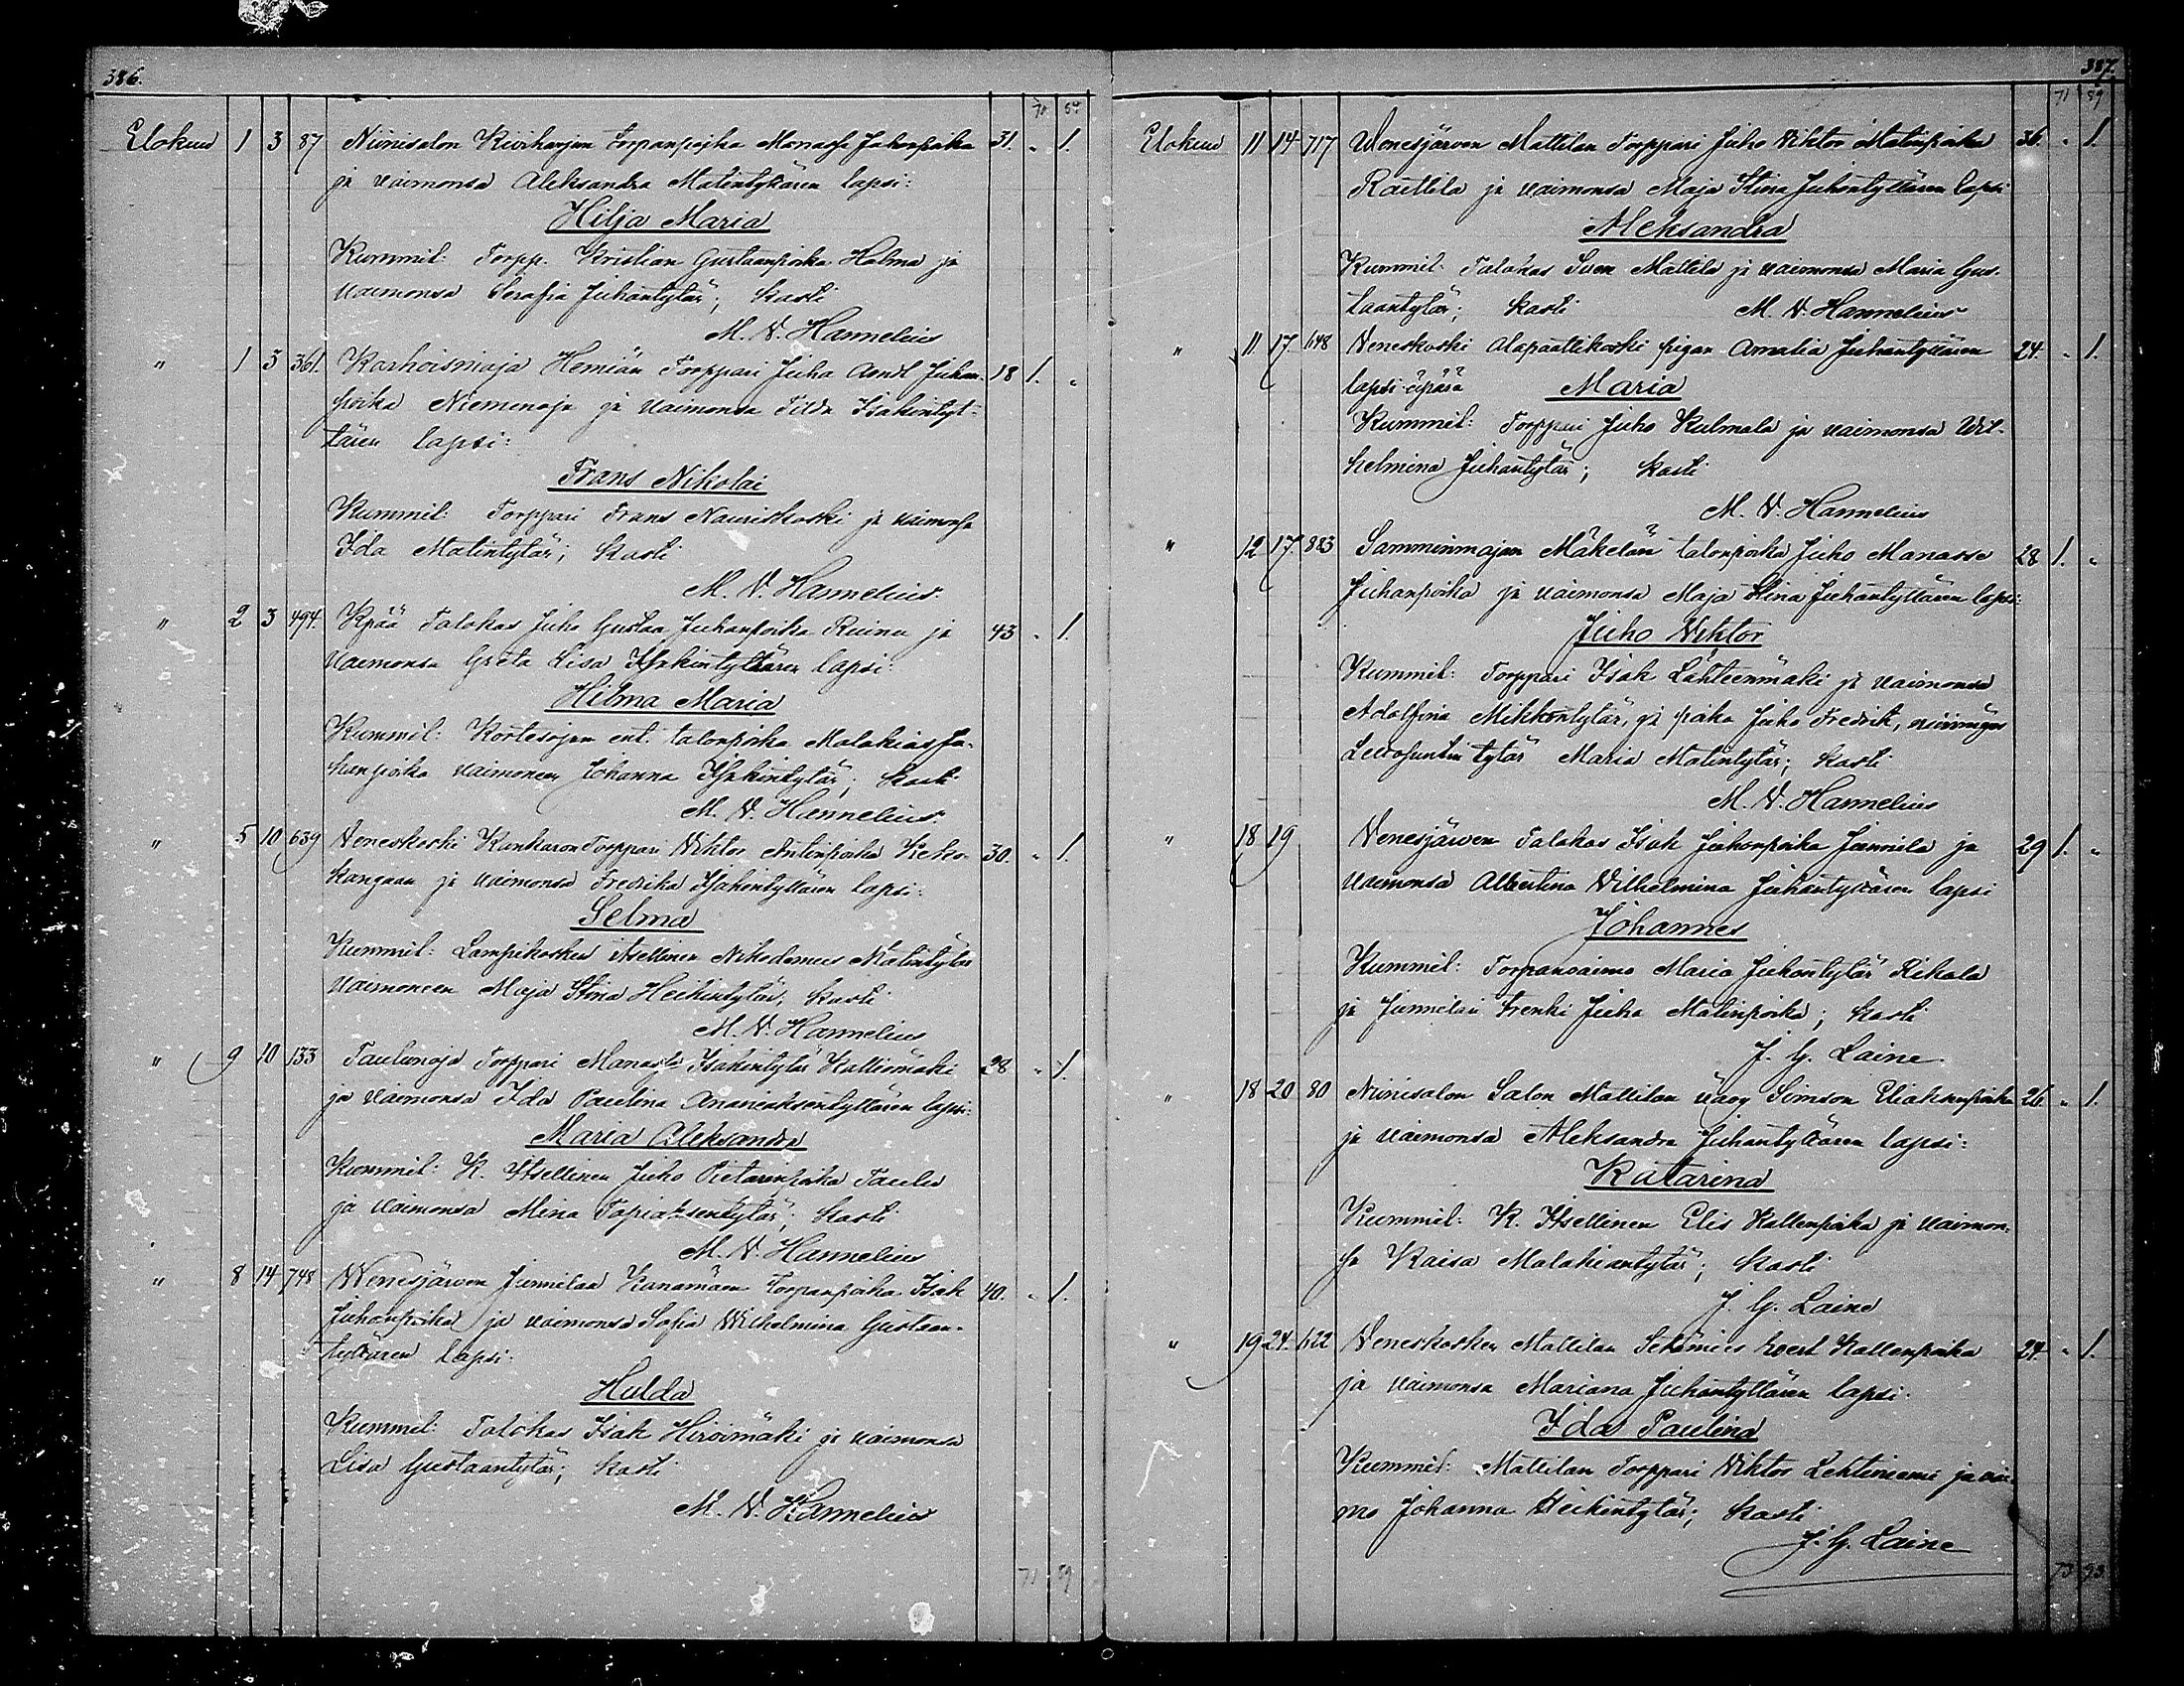 386.
70 84
Elokuu 1 3 87 Niinisalon Torpanpojka Manasse Juhonpoika 31. " 1.
ja vaimonsa Aleksandra Matintyttären lapsi:
Hilja Maria
Kummit: Torpp. Kristian Gustaanpoika Halma ja
vaimonsa Serafia Juhantytär; kasti
M. V. Hannelius
" 1 3 361. Karhoismaja Hemiän Torppari Juha Juhan- 18 1. "
poika Niemenoja ja vaimonsa Tilda Isakintyt-
tären lapsi:
Frans Nikolai
Kummit: Torppari Frans Nauriskoski ja vaimonsa
Ida Matintytär; kasti
M. V. Hannelius
" 2 3 494. Kpää Talokas Juho Gustaa Juhanpoika Ruinu ja 43 " 1.
vaimonsa Greta Lisa Isakintyttären lapsi:
Hilma Maria
Kummit: Kortesojan ent. talonpoika Malakias Ju-
hanpoika vaimoneen Johanna Isakintytär; kasti
M. V. Hannelius.
" 5 10 639 Veneskoski Kankaron Torppari Viktor Antinpoika Keko- 30. " 1.
kangaan ja vaimonsa Fredrika Isakintyttären lapsi:
Selma
Kummit: Lampikosken itsellinen Nikodemus Matintytär
vaimoneen Maja Stina Heikintytär; kasti
M. V. Hannelius
" 9 10 133 Taulunoja Torppari Manasse Isakintytär Kalliomäki 28 " 1.
ja vaimonsa Ida Paulina Ananiaksentyttären lapsi:
Maria Aleksandra
Kummit: K. Itsellinen Juho Pietarinpoika Taulu
ja vaimonsa Mina Topiaksentytär; kasti
M. V. Hannelius
" 8 14 748 Wenesjärven Junnilan Kanamäen Torpanpoika Isak 40. " 1.
Juhanpoika ja vaimonsa Sofia Wilhelmina Gustaan-
tyttären lapsi:
Hulda
Kummit: Talokas Isak Hirvimäki ja vaimonsa
Lisa Gustaantytär; kasti
M. V. Hannelius
71 89
387.
71 89
Elokuu 11 14 717 Wenesjärven Mattilan Torppari Juho Viktor Matinpoika 36. " 1.
Raittila ja vaimonsa Maja Stina Juhontyttären lapsi
Aleksandra
Kummit: Talokas Sven Mattila ja vaimonsa Maria Gus-
taantytär; kasti M. V. Hannelius
" 11. 17. 648 Veneskoski Alapaattikoski piijan Amalia Juhantyttären 24. " 1.
lapsi äpärä Maria
Kummit: Torppari Juho Kulmala ja vaimonsa Wil-
helmina Juhantytär; kasti
M. V. Hannelius
" 12 17. 883 Samminmajan Mäkelän talonpoika Juho Manasse 28 1. "
Juhanpoika ja vaimonsa Maja Stina Juhantyttären lapsi:
Juho Viktor
Kummit: Torppari Isak Lähteenmäki ja vaimonsa
Adolfina Mikkontytär, ja poika Juho Fredrik,
tytär Maria Matintytär; kasti
M. V. Hannelius
" 18 19 Venesjärven Talokas Isak Juhonpoika Junnila ja 29 1. "
vaimonsa Albertina Vilhelmina Juhantyttären lapsi
Johannes
Kummit: Torpanvaimo Maria Juhontytär Rikala
ja Junnilan trenki Juha Matinpoika; kasti
J. G. Laine
" 18 20 80 Niinisalon Salon Mattilan vävy Simson Eliaksenpoika 26. " 1.
ja vaimonsa Aleksandra Juhantyttären lapsi:
Katarina
Kummit: K. Itsellinen Elis Kallenpoika ja vaimon-
sa Kaisa Malakiantytär; kasti
J. G. Laine
" 19 24. 622 Veneskosken Mattilan Kallenpoika 24. " 1.
ja vaimonsa Mariana Juhantyttären lapsi:
Ida Paulina
Kummit: Mattilan Torppari Viktor Lehtiniemi ja vai-
mo Johanna Heikintytär; kasti
J. G. Laine
73 93